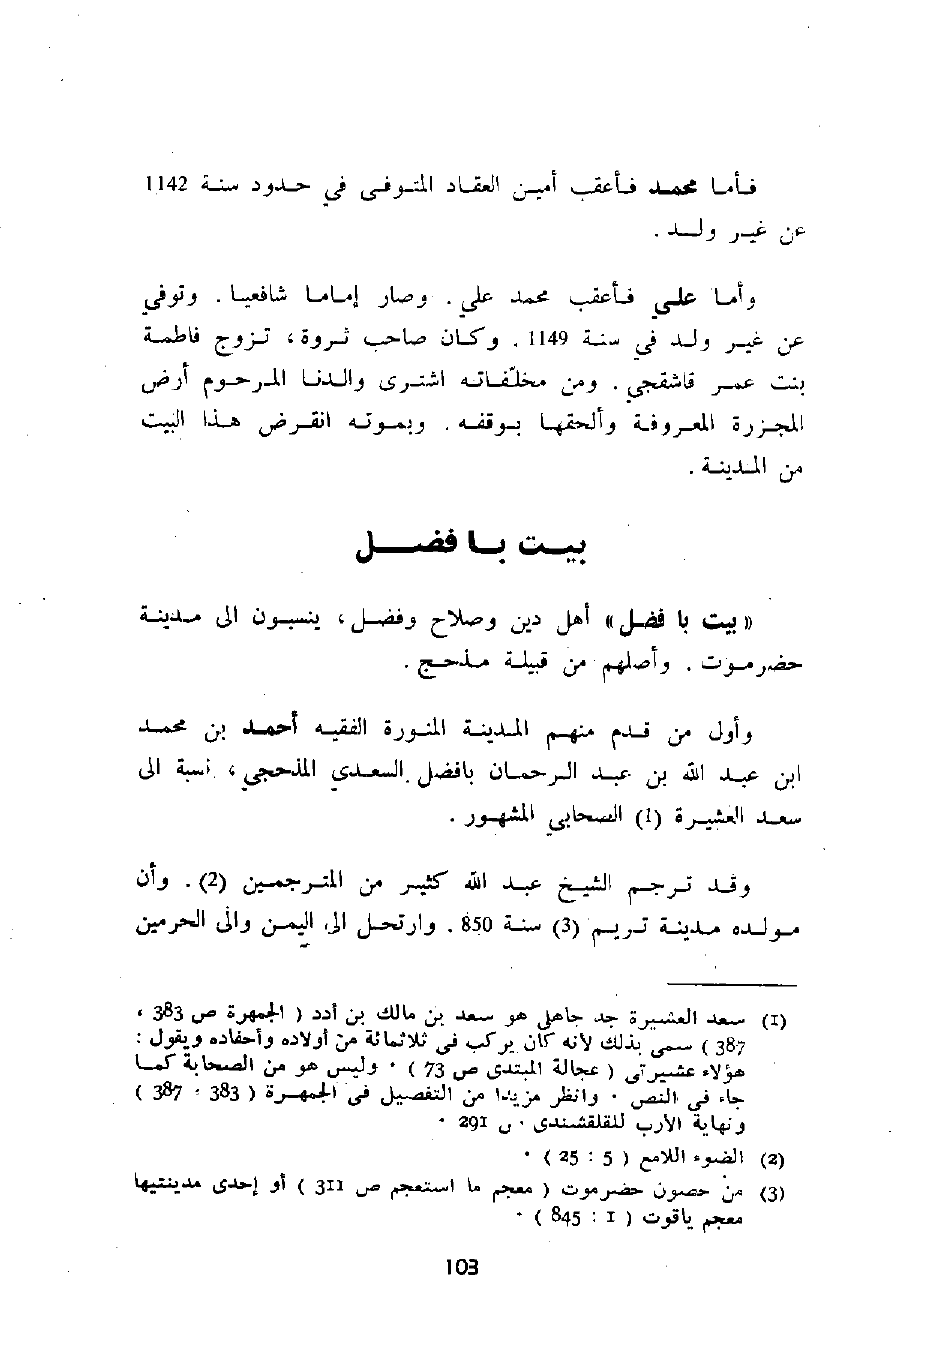 فأما محمد فأعقب أمين العقاد المتوفى في حدود سنة 1142
عن غير ولد .
وأما علي فأعقب محمد علي . وصار إماما شافعيا . وتوفي
عن غير ولد في سنة 1149 . وكان صاحب ثروة ، تزوج فاطمة
بنت عمر قاشقجي . ومن مخلّفاته اشترى والدنا المرحوم أرض
المجزرة المعروفة وألحقها بوقفه . وبموته انقرض هذا البيت
من المدينة .
بيت با فضل
« بيت با فضل » أهل دين وصلاح وفضل ، ينسبون الى مدينة
حضرموت . وأصلهم من قبيلة مذحج .
وأول من قدم منهم المدينة المنورة الفقيه أحمد بن محمد
ابن عبد الله بن عبد الرحمان بافضل السعدي المذحجي ، نسبة الى
سعد العشيرة (1) الصحابي المشهور .
وقد ترجم الشيخ عبد الله كثير من المترجمين (2) . وأن
مولده مدينة تريم (3) سنة 850 . وارتحل الى اليمن والى الحرمين
(1) سعد العشيرة جد جاهلي هو سعد بن مالك بن أدد ( الجمهرة ص 383 ،
387 ) سمى بذلك لأنه كان يركب فى ثلاثمائة من أولاده وأحفاده ويقول :
هؤلاء عشيرتى ( عجالة المبتدى ص 73 ) . وليس هو من الصحابة كما
جاء فى النص . وانظر مزيدا من التفصيل فى الجمهرة ( 383 ، 387 )
ونهاية الأرب للقلقشندى . ص 291 .
(2) الضوء اللامع ( 5 : 25 ) .
(3) من حصون حضرموت ( معجم ما استعجم ص 311 ) أو إحدى مدينتيها
معجم ياقوت ( 1 : 845 ) .
103